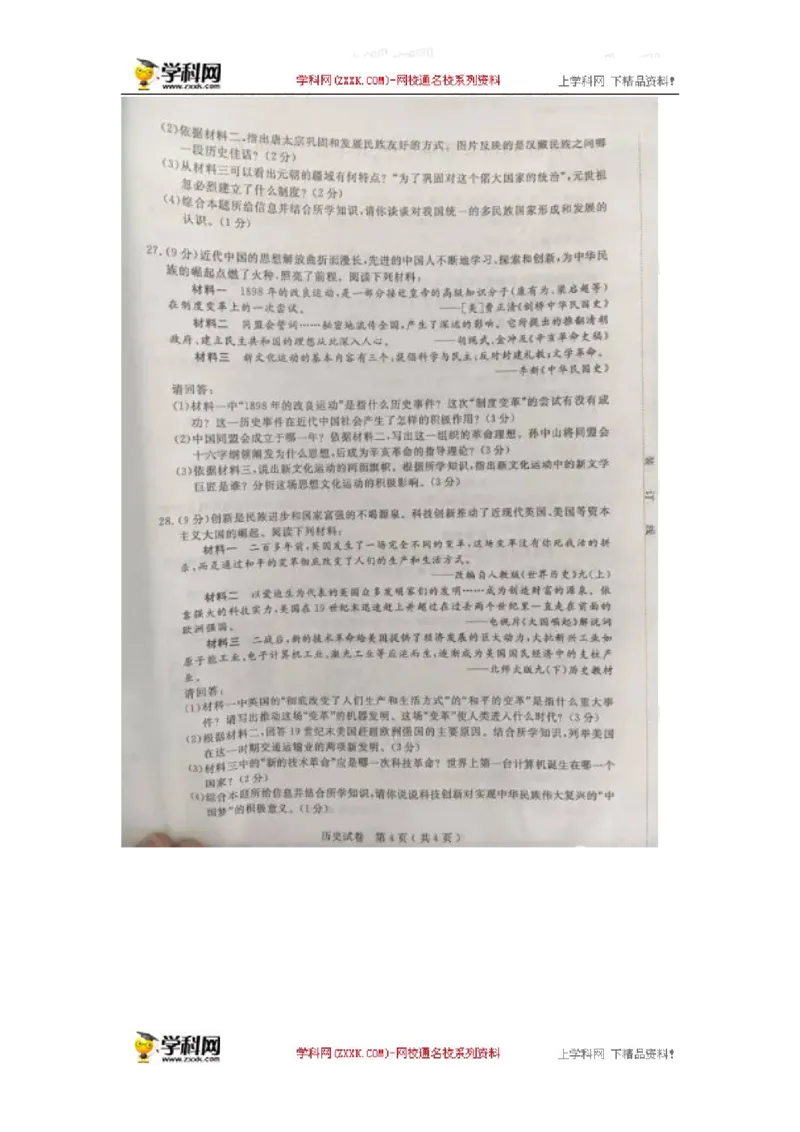 学科网
www.zxxk.com
学科网(ZXXK.COM)-网校通名校系列资料
上学科网 下精品资料!
(2)依据材料二,指出唐太宗巩固和发展民族友好的方式。图片反映的是汉藏民族之间哪
一段历史佳话?(2分)
(3)从材料三可以看出元朝的疆域有何特点?“为了巩固对这个偌大国家的统治”,元世祖
忽必烈建立了什么制度?(2分)
(4)综合本题所给信息并结合所学知识,请你谈谈对我国统一的多民族国家形成和发展的
认识。(1分)
27.(9分)近代中国的思想解放曲折而漫长,先进的中国人不断地学习、探索和创新,为中华民
族的崛起点燃了火种,照亮了前程。阅读下列材料:
材料一 1898年的改良运动,是一部分接近皇帝的高级知识分子(康有为、梁启超等)
在制度变革上的一次尝试。 ——[美]费正清《剑桥中华民国史》
材料二 同盟会誓词……秘密地流传全国,产生了深远的影响。它所提出的推翻清朝
政府、建立民主共和国的理想从此深入人心。 ——胡绳武、金冲及《辛亥革命史稿》
材料三 新文化运动的基本内容有三个:提倡科学与民主;反对封建礼教;文学革命。
——李新《中华民国史》
请回答:
(1)材料一中“1898年的改良运动”是指什么历史事件?这次“制度变革”的尝试有没有成
功?这一历史事件在近代中国社会产生了怎样的积极作用?(3分)
(2)中国同盟会成立于哪一年?依据材料二,写出这一组织的革命理想。孙中山将同盟会
十六字纲领阐发为什么思想,后成为辛亥革命的指导理论?(3分)
(3)依据材料三,说出新文化运动的两面旗帜。根据所学知识,指出新文化运动中的新文学
巨匠是谁?分析这场思想文化运动的积极影响。(3分)
28.(9分)创新是民族进步和国家富强的不竭源泉。科技创新推动了近现代英国、美国等资本
主义大国的崛起。阅读下列材料:
材料一 二百多年前,英国发生了一场完全不同的变革,这场变革没有你死我活的拼
杀,而是通过和平的变革彻底改变了人们的生产和生活方式。
——改编自人教版《世界历史》九(上)
材料二 以爱迪生为代表的美国众多发明家们的发明……成为创造财富的源泉。依
靠强大的科技实力,美国在19世纪末迅速赶上并超过在过去两个世纪里一直走在前面的
欧洲强国。 ——电视片《大国崛起》解说词
材料三 二战后,新的技术革命给美国提供了经济发展的巨大动力,大批新兴工业如
原子能工业、电子计算机工业、激光工业等应运而生,逐渐成为美国国民经济中的支柱产
业。 ——北师大版九(下)历史教材
请回答:
(1)材料一中英国的“彻底改变了人们生产和生活方式”的“和平的变革”是指什么重大事
件?请写出推动这场“变革”的机器发明。这场“变革”使人类进入什么时代?(3分)
(2)根据材料二,回答19世纪末美国赶超欧洲强国的主要原因。结合所学知识,列举美国
在这一时期交通运输业的两项新发明。(3分)
(3)材料三中的“新的技术革命”应是哪一次科技革命?世界上第一台计算机诞生在哪一个
国家?(2分)
(4)综合本题所给信息并结合所学知识,请你说说科技创新对实现中华民族伟大复兴的“中
国梦”的积极意义。(1分)
装
订
线
历史试卷 第4页(共4页)
学科网
www.zxxk.com
学科网(ZXXK.COM)-网校通名校系列资料
上学科网 下精品资料!